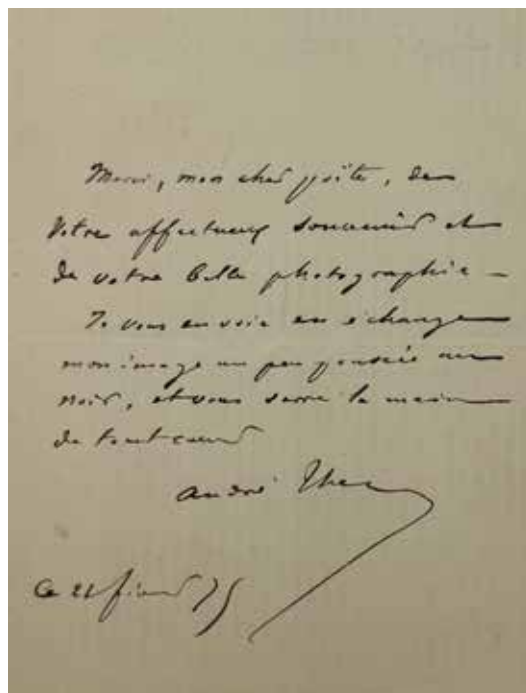 Merci, mon cher poëte, de
Votre affectueux souvenir et
de votre belle photographie —
Je vous envoie en échange
mon image un peu poussée au
noir, et vous serre la main
de tout cœur
André
Ce 21 février 75